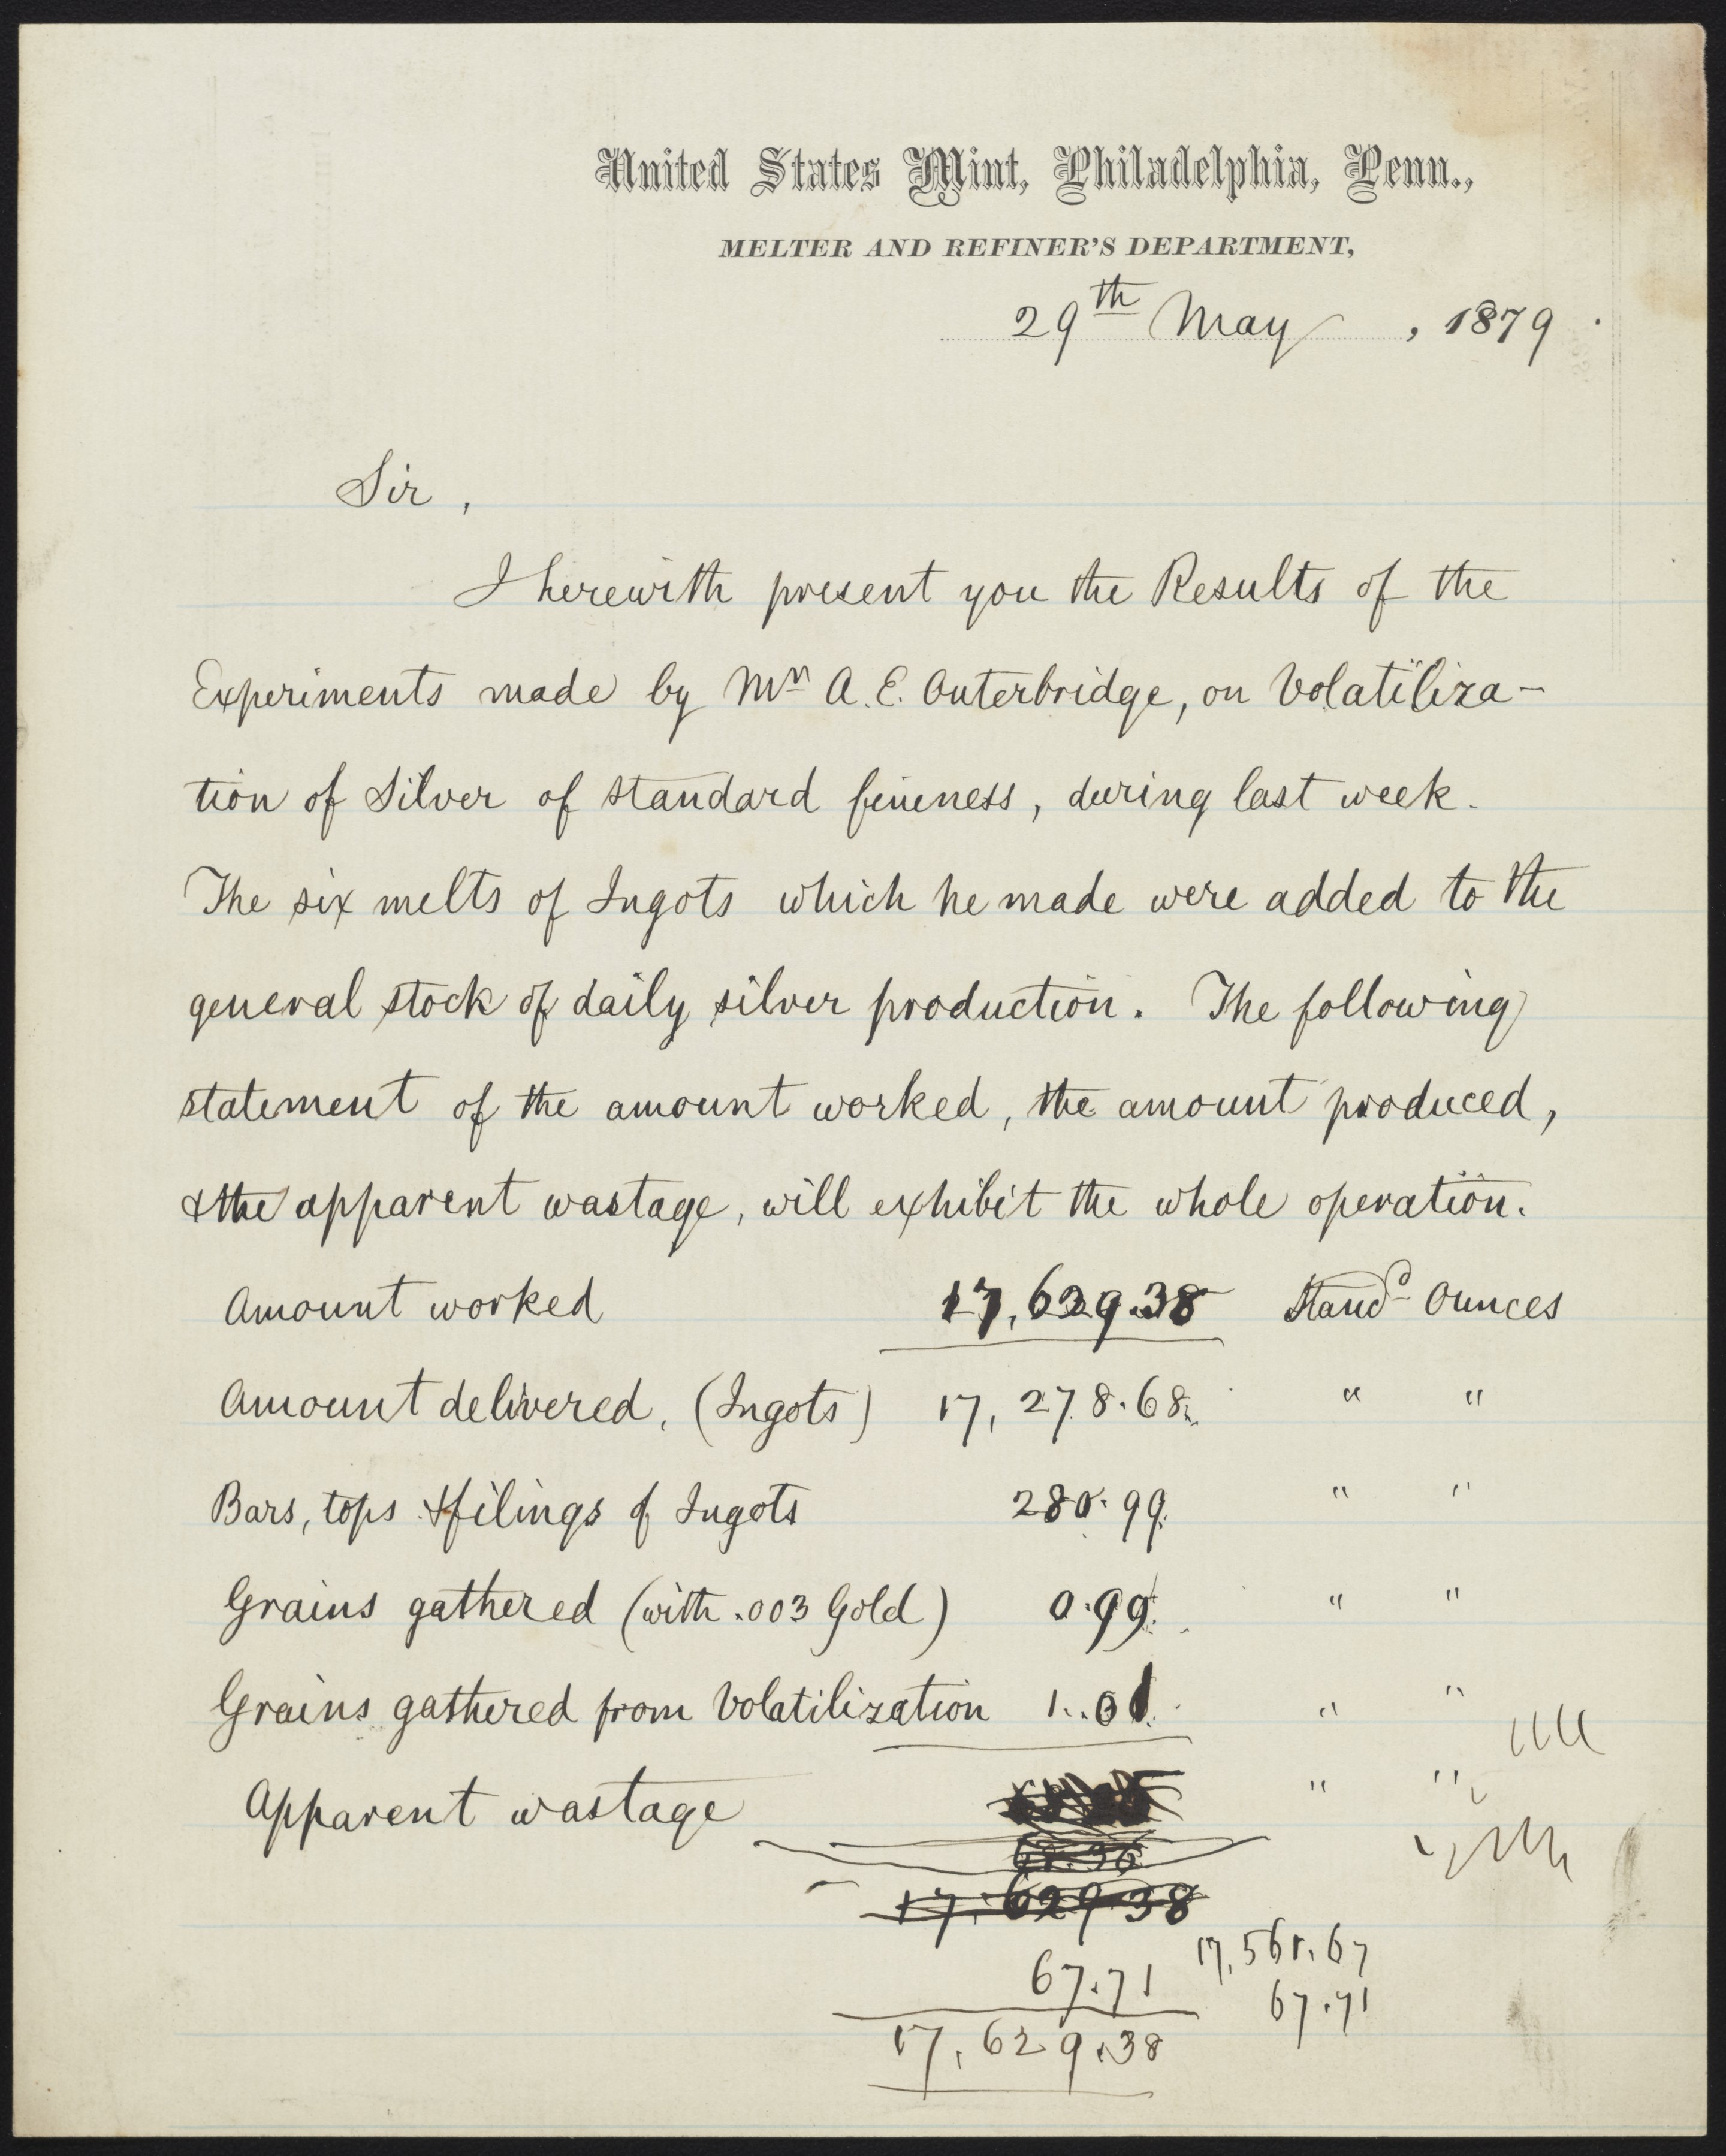 United States Mint, Philadelphia, Penn.,
MELTER AND REFINER'S DEPARTMENT,
29th May, 1879.
Sir,
I herewith present you the Results of the
Experiments made by Mr A. E. Outerbridge, on Volatiliza-
tion of Silver of standard fineness, during last week.
The six melts of Ingots which he made were added to the
general stock of daily silver production. The following
statement of the amount worked, the amount produced,
& the apparent wastage, will exhibit the whole operation.
Amount worked 17,629.38 Standd Ounces
Amount delivered, (Ingots) 17,278.68 " "
Bars, tops & filings of Ingots 280.99 " "
Grains gathered (with .003 Gold) 0.99 " "
Grains gathered from Volatilization 1.01 " "
Apparent wastage " "
17,629.38
67.71 17,561.67
67.71
17,629.38